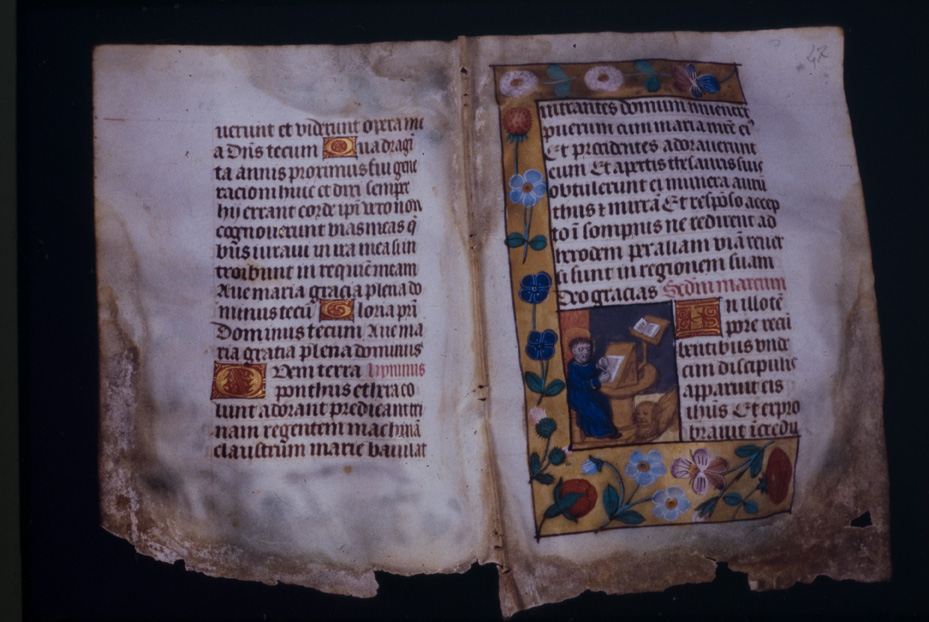 uerunt et viderunt opera me
a Dñs tecum Quadragī
ta annis proximus fui gene
rationi huic et dixi semper
hij errant corde ipī vero non
cognoverunt vias meas q̄
bus iuravi in ira mea si in
troibunt in requiē meam
Ave maria gracia plena do
minus tecū Gloria pr̄i
Dominus tecum Ave ma
ria gratia plena dominus
Quem terra hympnus
ponthus ethera co
lunt adorant predicant tri
nam regentem machinā
claustrum marie baiulat
47
intrantes domum invener̄t
puerum cum maria mr̄e ei᷒
Et procidentes adoraverunt
eum Et apertis thesauris suis
obtulerunt ei munera aurū
thus ⁊ mirrā Et respōso accep
to ī sompnis ne redirent ad
herodem per aliam viā rever
si sunt in regionem suam
Deo gracias Scđm marcum
In illo tē
pore recū
bentibus unde
cim discipulis
apparuit eis
ihūs Et expro
bravit īcredu